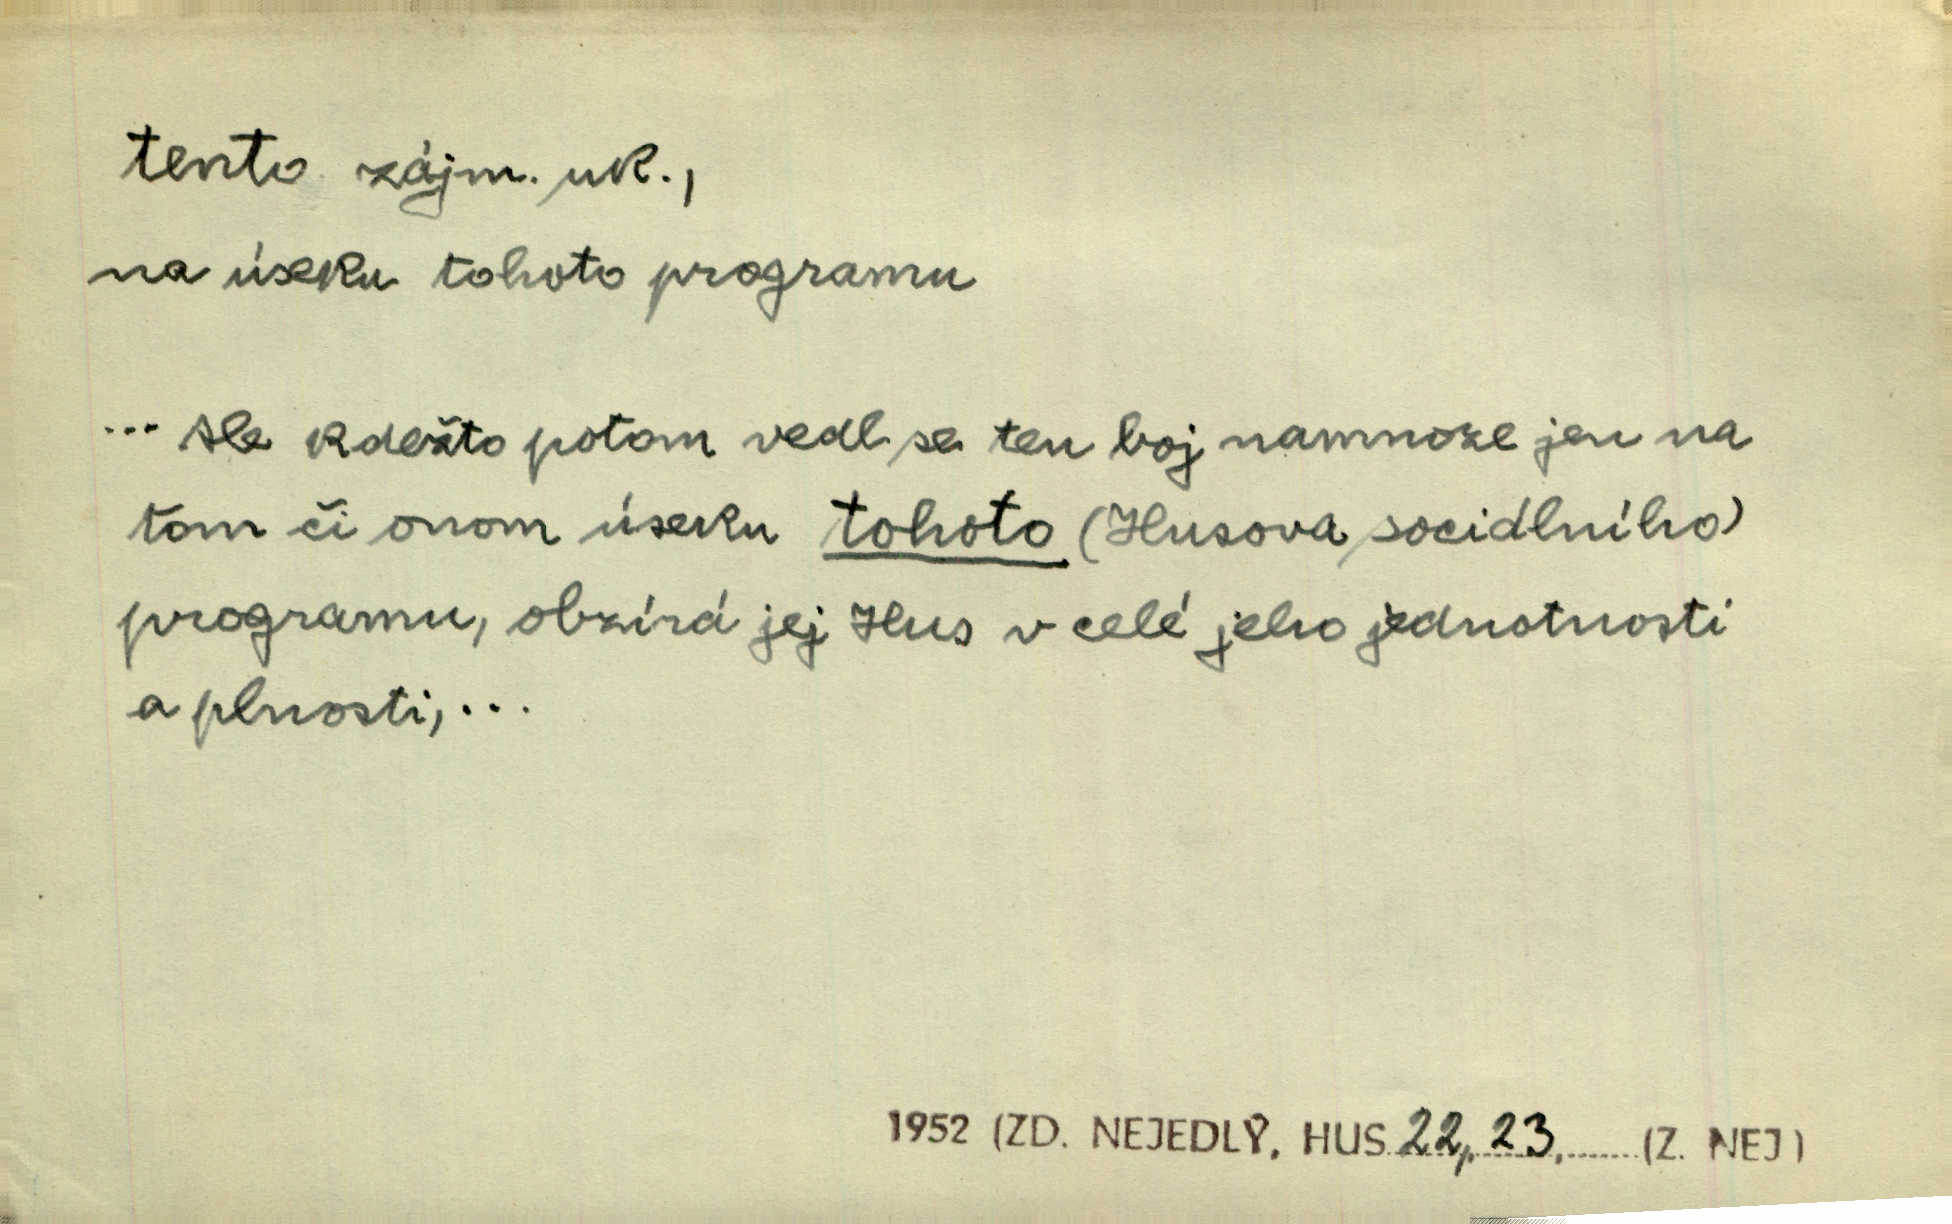 tento zájm. uk.,
na úseku tohoto programu
... Ale kdežto potom vedl se ten boj namnoze jen na
tom či onom úseku tohoto (Husova sociálního)
programu, obzírá jej Hus v celé jeho jednotnosti
a plnosti, ...
1952 (ZD. NEJEDLÝ, HUS 22, 23, (Z. NEJ)